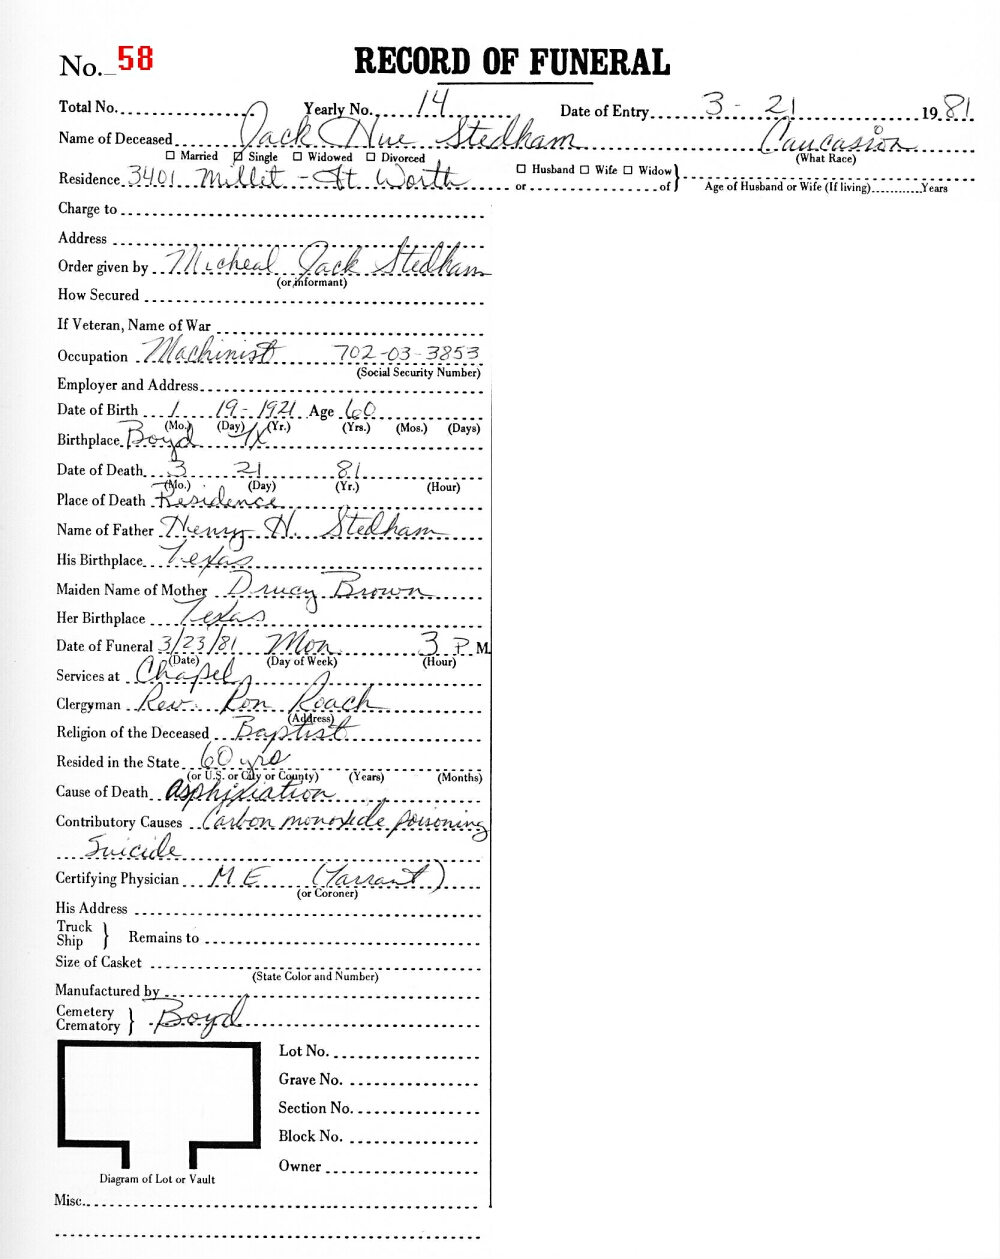 No. 58
RECORD OF FUNERAL
Total No. Yearly No. 14 Date of Entry 3 - 21 1981
Name of Deceased Jack Hue Stedham Caucasion
☐ Married ☑ Single ☐ Widowed ☐ Divorced (What Race)
Residence 3401 Millet - Ft Worth ☐ Husband ☐ Wife ☐ Widow }
or of Age of Husband or Wife (If living) Years
Charge to
Address
Order given by Micheal Jack Stedham
(or informant)
How Secured
If Veteran, Name of War
Occupation Machinist 702-03-3853
(Social Security Number)
Employer and Address
Date of Birth 1 19 - 1921 Age 60
(Mo.) (Day) (Yr.) (Yrs.) (Mos.) (Days)
Birthplace Boyd Tx
Date of Death 3 21 81
(Mo.) (Day) (Yr.) (Hour)
Place of Death Residence
Name of Father Henry H. Stedham
His Birthplace Texas
Maiden Name of Mother Drucy Brown
Her Birthplace Texas
Date of Funeral 3/23/81 Mon 3 P M.
(Date) (Day of Week) (Hour)
Services at Chapel
Clergyman Rev. Ron Roach
(Address)
Religion of the Deceased Baptist
Resided in the State 60 yrs
(or U.S. or City or County) (Years) (Months)
Cause of Death Asphixiation
Contributory Causes Carbon monoxide poisoning
Suicide
Certifying Physician ME (Tarrant)
(or Coroner)
His Address
Truck
Ship } Remains to
Size of Casket
(State Color and Number)
Manufactured by
Cemetery
Crematory } Boyd
Lot No.
Grave No.
Section No.
Block No.
Owner
Diagram of Lot or Vault
Misc.